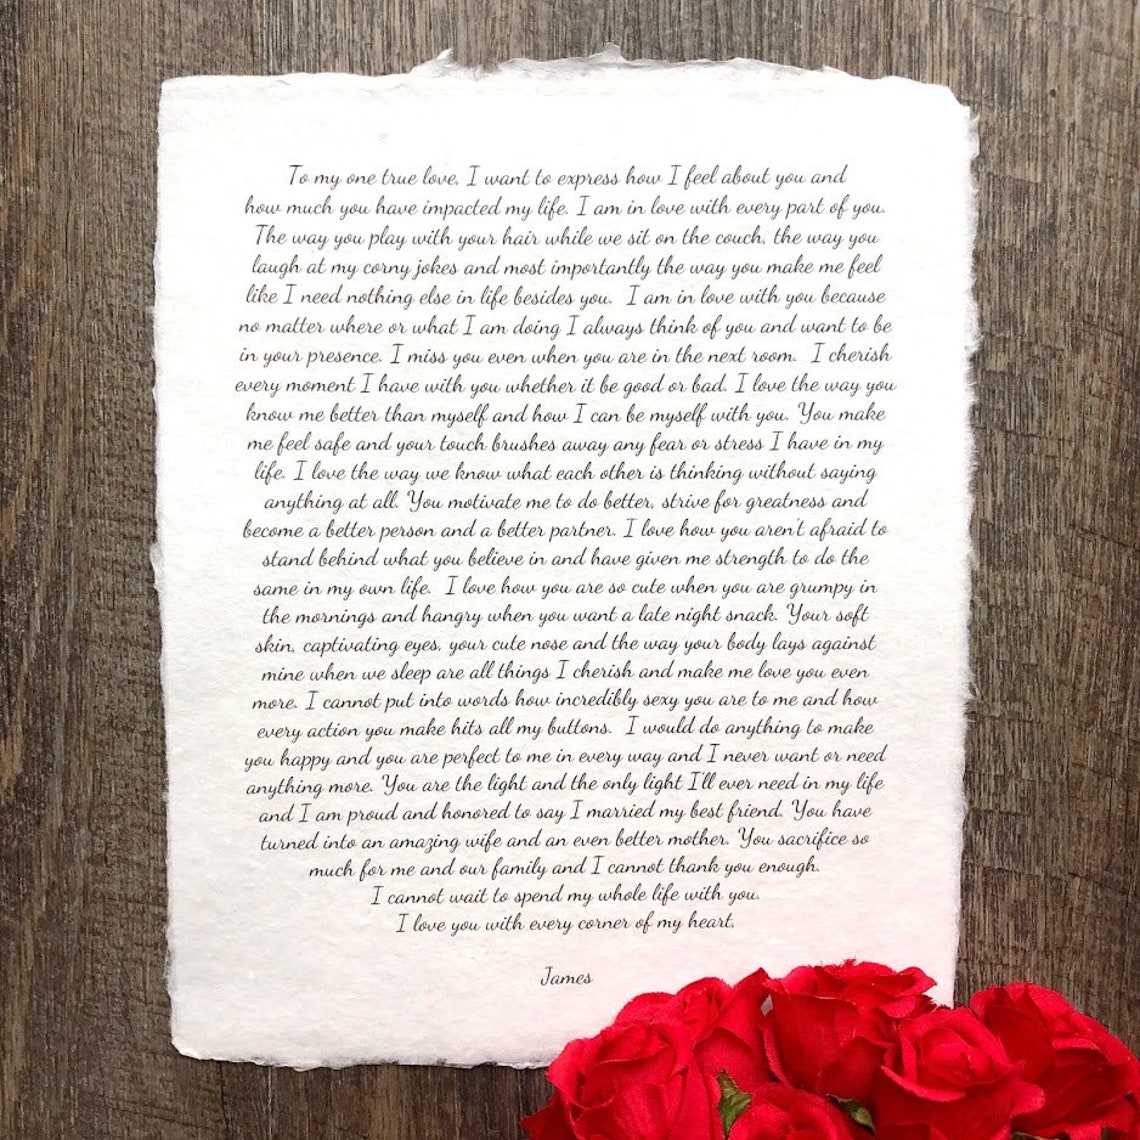 To my one true love, I want to express how I feel about you and
how much you have impacted my life. I am in love with every part of you.
The way you play with your hair while we sit on the couch, the way you
laugh at my corny jokes and most importantly the way you make me feel
like I need nothing else in life besides you. I am in love with you because
no matter where or what I am doing I always think of you and want to be
in your presence. I miss you even when you are in the next room. I cherish
every moment I have with you whether it be good or bad. I love the way you
know me better than myself and how I can be myself with you. You make
me feel safe and your touch brushes away any fear or stress I have in my
life. I love the way we know what each other is thinking without saying
anything at all. You motivate me to do better, strive for greatness and
become a better person and a better partner. I love how you aren't afraid to
stand behind what you believe in and have given me strength to do the
same in my own life. I love how you are so cute when you are grumpy in
the mornings and hangry when you want a late night snack. Your soft
skin, captivating eyes, your cute nose and the way your body lays against
mine when we sleep are all things I cherish and make me love you even
more. I cannot put into words how incredibly sexy you are to me and how
every action you make hits all my buttons. I would do anything to make
you happy and you are perfect to me in every way and I never want or need
anything more. You are the light and the only light I'll ever need in my life
and I am proud and honored to say I married my best friend. You have
turned into an amazing wife and an even better mother. You sacrifice so
much for me and our family and I cannot thank you enough.
I cannot wait to spend my whole life with you.
I love you with every corner of my heart,
James